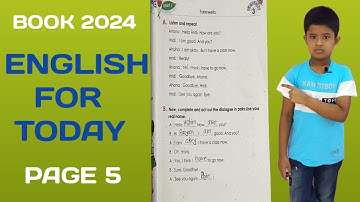 BOOK 2024
ENGLISH
FOR
TODAY
PAGE 5
Farewells
3
A. Listen and repeat.
Ahona : Hello Hridi. How are you?
Hridi : I am good. And you?
Ahona : I am okay. But I have a class now.
Hridi : Really!
Ahona : Yes. I think I have to go now.
Hridi : Goodbye, Ahona.
Ahona : Goodbye, Hridi.
Hridi : See you again. Bye.
B. Now, complete and act out the dialogue in pairs. Use your
real name.
A : Hello How are you?
B : Hi I am good. And you?
A : I am okay I have a class now.
B : Oh, really.
A : Yes, I think I have to go now.
B : Sure, Goodbye.
A : See you again. Bye